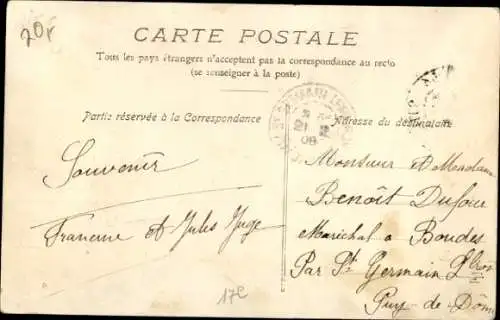 CARTE POSTALE
Tous les pays étrangers n'acceptent pas la correspondance au recto
(se renseigner à la poste)
Partie réservée à la Correspondance
Adresse du destinataire
21
09
Souvenir
et Jules Juge
Monsieur et Madame
Benoît Dufour
Maréchal a Boudes
Par St Germain L
Puy-de Dôm